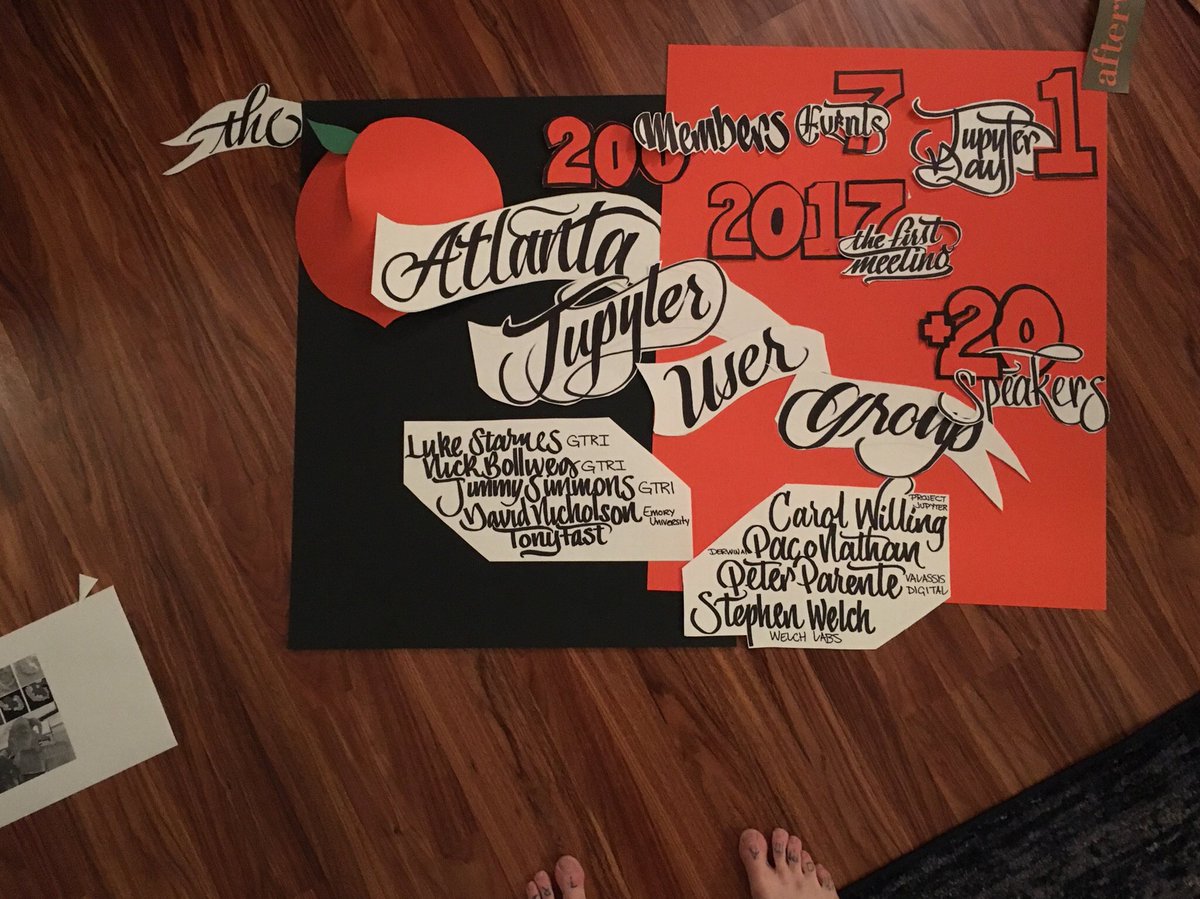 the
200 Members
7 Events
Jupyter Day 1
2017
the first
meeting
+20
Speakers
Atlanta
Jupyter
User
Group
Luke Starnes GTRI
Nick Bollweg GTRI
Jimmy Summons GTRI
David Nicholson Emory University
Tony Fast
Carol Willing PROJECT JUPYTER
DERWIN AI Paco Nathan
Peter Parente VALASSIS DIGITAL
Stephen Welch
WELCH LABS
after